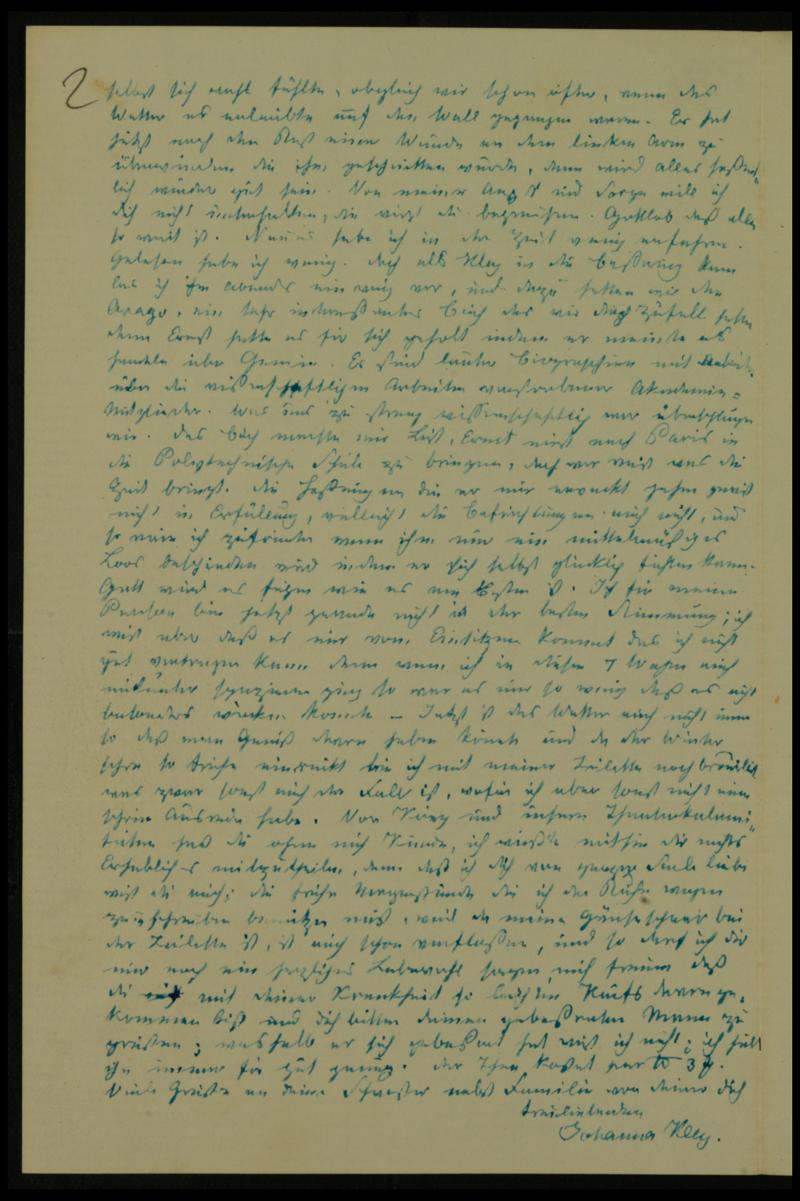 2
selbst sich wohl fühlte, obgleich wir schon öfter, wenn das
Wetter es erlaubte auf den Wall gegangen waren. Er hat
jetzt noch den Rest einer Wunde an dem linken Arm zu
überwinden die ihm geschnitten wurde, dann wird alles hoffent-
lich wieder gut sein. Von meiner Angst und Sorge will ich
dich nicht unterhalten, die wirst du begreifen. Gottlob daß alles
so weit ist. Neues habe ich in der Zeit wenig erfahren.
Gelesen habe ich wenig. Doch als Kley in die Besserung kam
las ich ihm abends ein wenig vor, und dazu hatten wir den
Arago, ein sehr interessantes Buch das wir durch Zufall hatten
denn Ernst hatte es für sich geholt indem er meinte es
handele über Genie. Es sind lauter Biographien mit
über die wissenschaftlichen Arbeiten verstorbener Akademie-
Mitglieder. Was uns zu streng wissenschaftlich war überschlugen
wir. Das Buch machte mir Lust, Ernst einst nach Paris in
die Polytechnische Schule zu bringen, doch wer weiß was die
Zeit bringt. Die Hoffnungen die er mir erweckt gehen gewiß
nicht in Erfüllung, vielleicht die Befürchtungen auch nicht, und
so wäre ich zufrieden wenn ihm nur ein mittelmäßiges
Loos beschieden wird indem er sich selbst glücklich fühlen kann.
Gott wird es fügen wie es am Besten ist. Ich für meine
Person bin jetzt gerade nicht in der besten Stimmung; ich
weiß aber daß es nur vom Einsitzen kommt das ich nicht
gut vertragen kann denn wenn ich in diesen 7 Wochen auch
mitunter spazieren ging so war es nur so wenig daß es nicht
besonders wirken konnte – Jetzt ist das Wetter auch nicht immer
so daß man Genuß davon haben könnte und da der Winter
schon so frühe einrückt bin ich mit meiner Toilette noch brouillirt
was zwar sonst auch der Fall ist, wofür ich aber sonst nicht eine
schöne Ausrede habe. Von und unsern
hast du ohne mich Kunde, ich wüßte mithin dir nichts
Erhebliches mitzutheilen, denn daß ich dich von ganzer Seele liebe
weißt du auch; die frühe Morgenstunde die ich der Ruhe wegen
zum schreiben benützen muß, weil da meine Gänseschaar bei
der Toilette ist, ist auch schon verflossen, und so darf ich dir
nur noch ein herzliches Lebewohl sagen, mich freuen daß
du mit deiner Krankheit so leichten Kaufs davon ge-
kommen bist und dich bitten deinen gebesserten Mann zu
grüßen; weshalb er sich gebessert hat weiß ich nicht; ich hielt
ihn immer für gut genug. Der Thee kostet per
Viele Grüße an deine Schwester nebst Familie von deiner dich
treuliebenden
Johanna Kley.